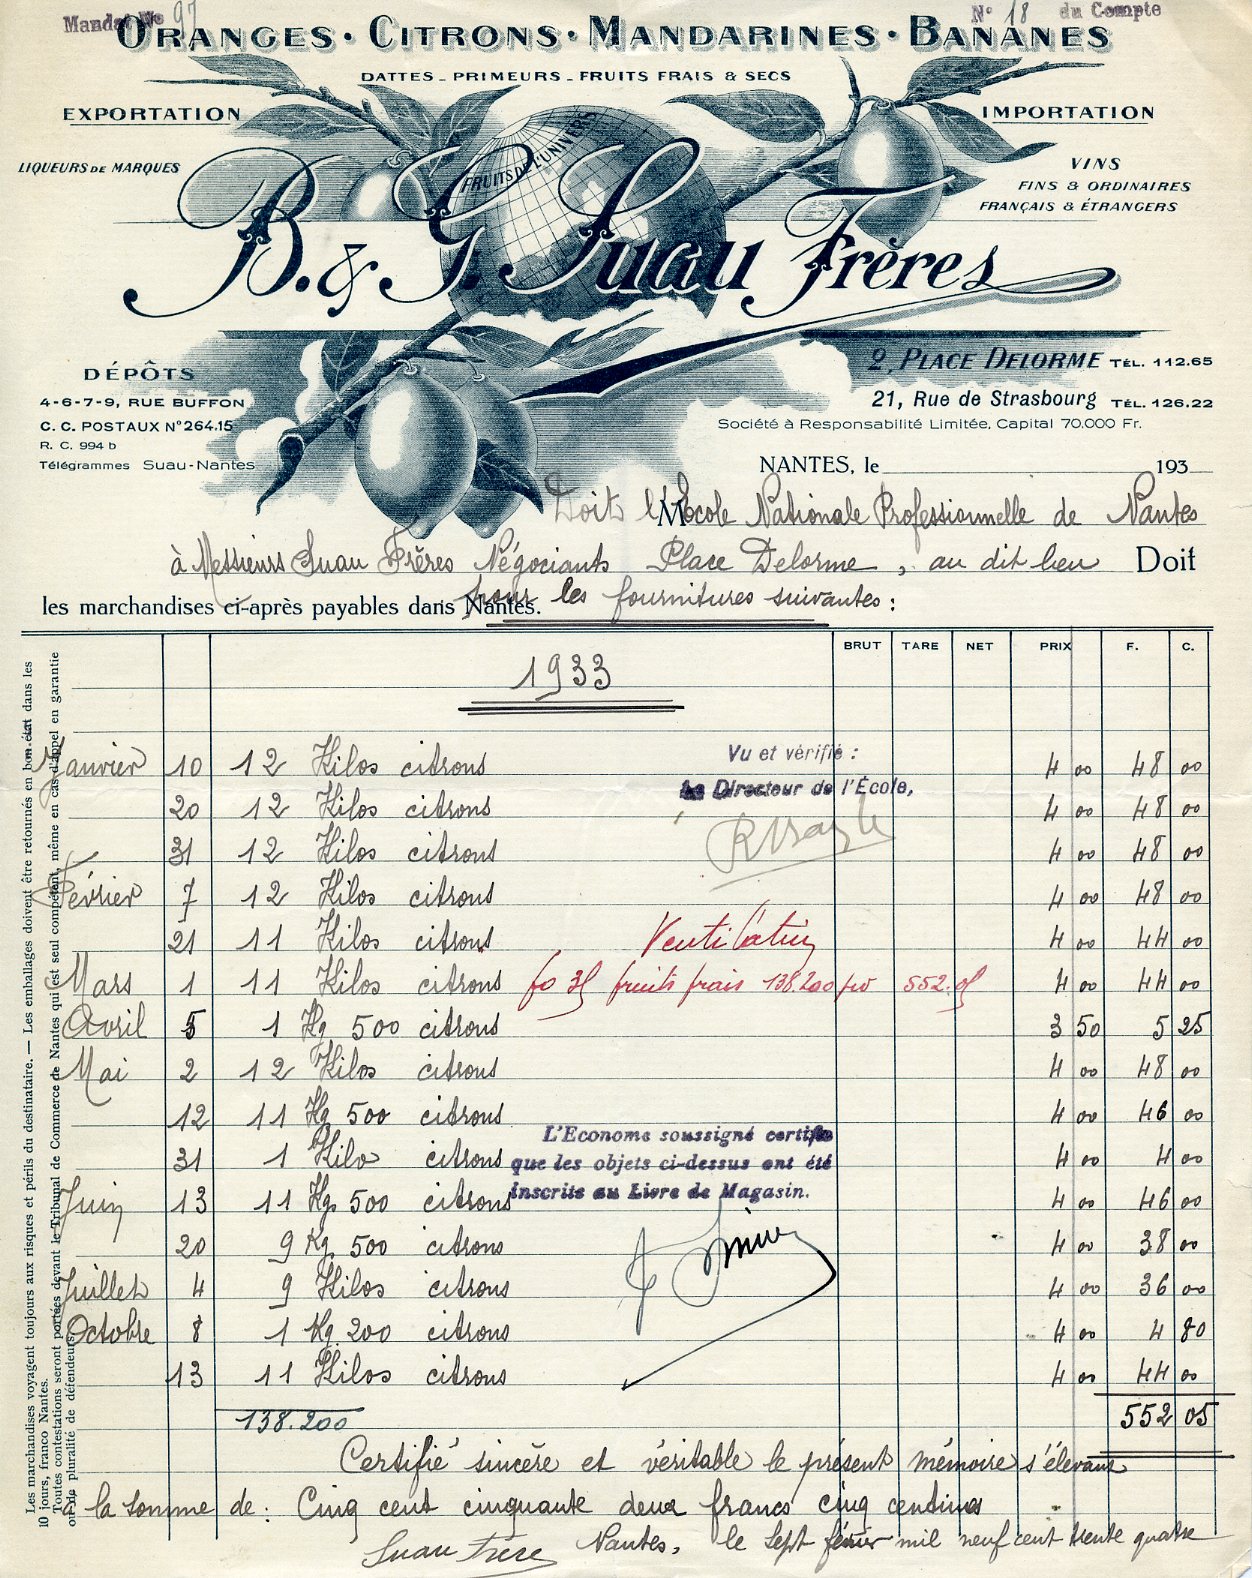 Mandat No 97
N° 18 du Compte
ORANGES · CITRONS · MANDARINES · BANANES
DATTES - PRIMEURS - FRUITS FRAIS & SECS
EXPORTATION
IMPORTATION
LIQUEURS DE MARQUES
VINS
FINS & ORDINAIRES
FRANÇAIS & ÉTRANGERS
FRUITS DE L'UNIVERS
B. & G. Suau Frères
DÉPÔTS
4-6-7-9, RUE BUFFON
C. C. POSTAUX N° 264.15
R. C. 994 b
Télégrammes Suau-Nantes
2, PLACE DELORME TÉL. 112.65
21, Rue de Strasbourg TÉL. 126.22
Société à Responsabilité Limitée, Capital 70.000 Fr.
NANTES, le 193
Doit l'École Nationale Professionnelle de Nantes
à Messieurs Suau Frères Négociants Place Delorme, au dit lieu Doit
les marchandises ci-après payables dans Nantes.
pour les fournitures suivantes :
BRUT TARE NET PRIX F. C.
1933
Janvier 10 12 Kilos citrons 4 00 48 00
20 12 Kilos citrons 4 00 48 00
31 12 Kilos citrons 4 00 48 00
Février 7 12 Kilos citrons 4 00 48 00
21 11 Kilos citrons 4 00 44 00
Mars 1 11 Kilos citrons 4 00 44 00
Avril 5 1 Kg 500 citrons 3 50 5 25
Mai 2 12 Kilos citrons 4 00 48 00
12 11 Kg 500 citrons 4 00 46 00
31 1 Kilo citrons 4 00 4 00
Juin 13 11 Kg 500 citrons 4 00 46 00
20 9 Kg 500 citrons 4 00 38 00
Juillet 4 9 Kilos citrons 4 00 36 00
Octobre 8 1 Kg 200 citrons 4 00 4 80
13 11 Kilos citrons 4 00 44 00
138.200 552 05
Vu et vérifié :
Le Directeur de l'École,
Ventilation
fo 35 fruits frais 138.200 552.05
L'Econome soussigné certifie
que les objets ci-dessus ont été
inscrits au Livre de Magasin.
Certifié sincère et véritable le présent mémoire s'élevant
à la somme de : Cinq cent cinquante deux francs cinq centimes
Nantes, le sept février mil neuf cent trente quatre
Suau Frère
Les marchandises voyagent toujours aux risques et périls du destinataire. — Les emballages doivent être retournés en bon état dans les
10 jours, franco Nantes.
Toutes contestations seront portées devant le Tribunal de Commerce de Nantes qui est seul compétent, même en cas d'appel en garantie
ou de pluralité de défendeurs.